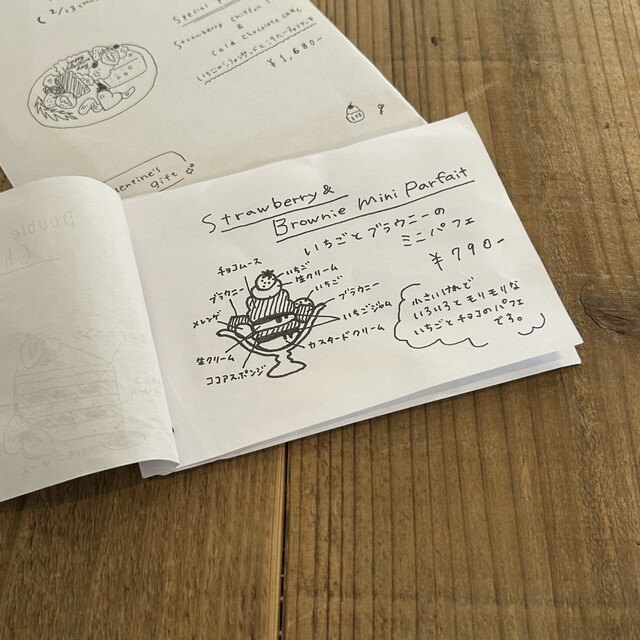 Special
Strawberry chiffon
&
Cold chocolate cake
¥1,680-
entine's
gift
Double
Ch
Strawberry &
Brownie mini Parfait
いちごとブラウニーの
ミニパフェ
¥790-
チョコムース
いちご
生クリーム
いちご
ブラウニー
ブラウニー
メレンゲ
いちごジャム
カスタードクリーム
生クリーム
ココアスポンジ
小さいけれど
いろいろとモリモリな
いちごとチョコのパフェ
です。